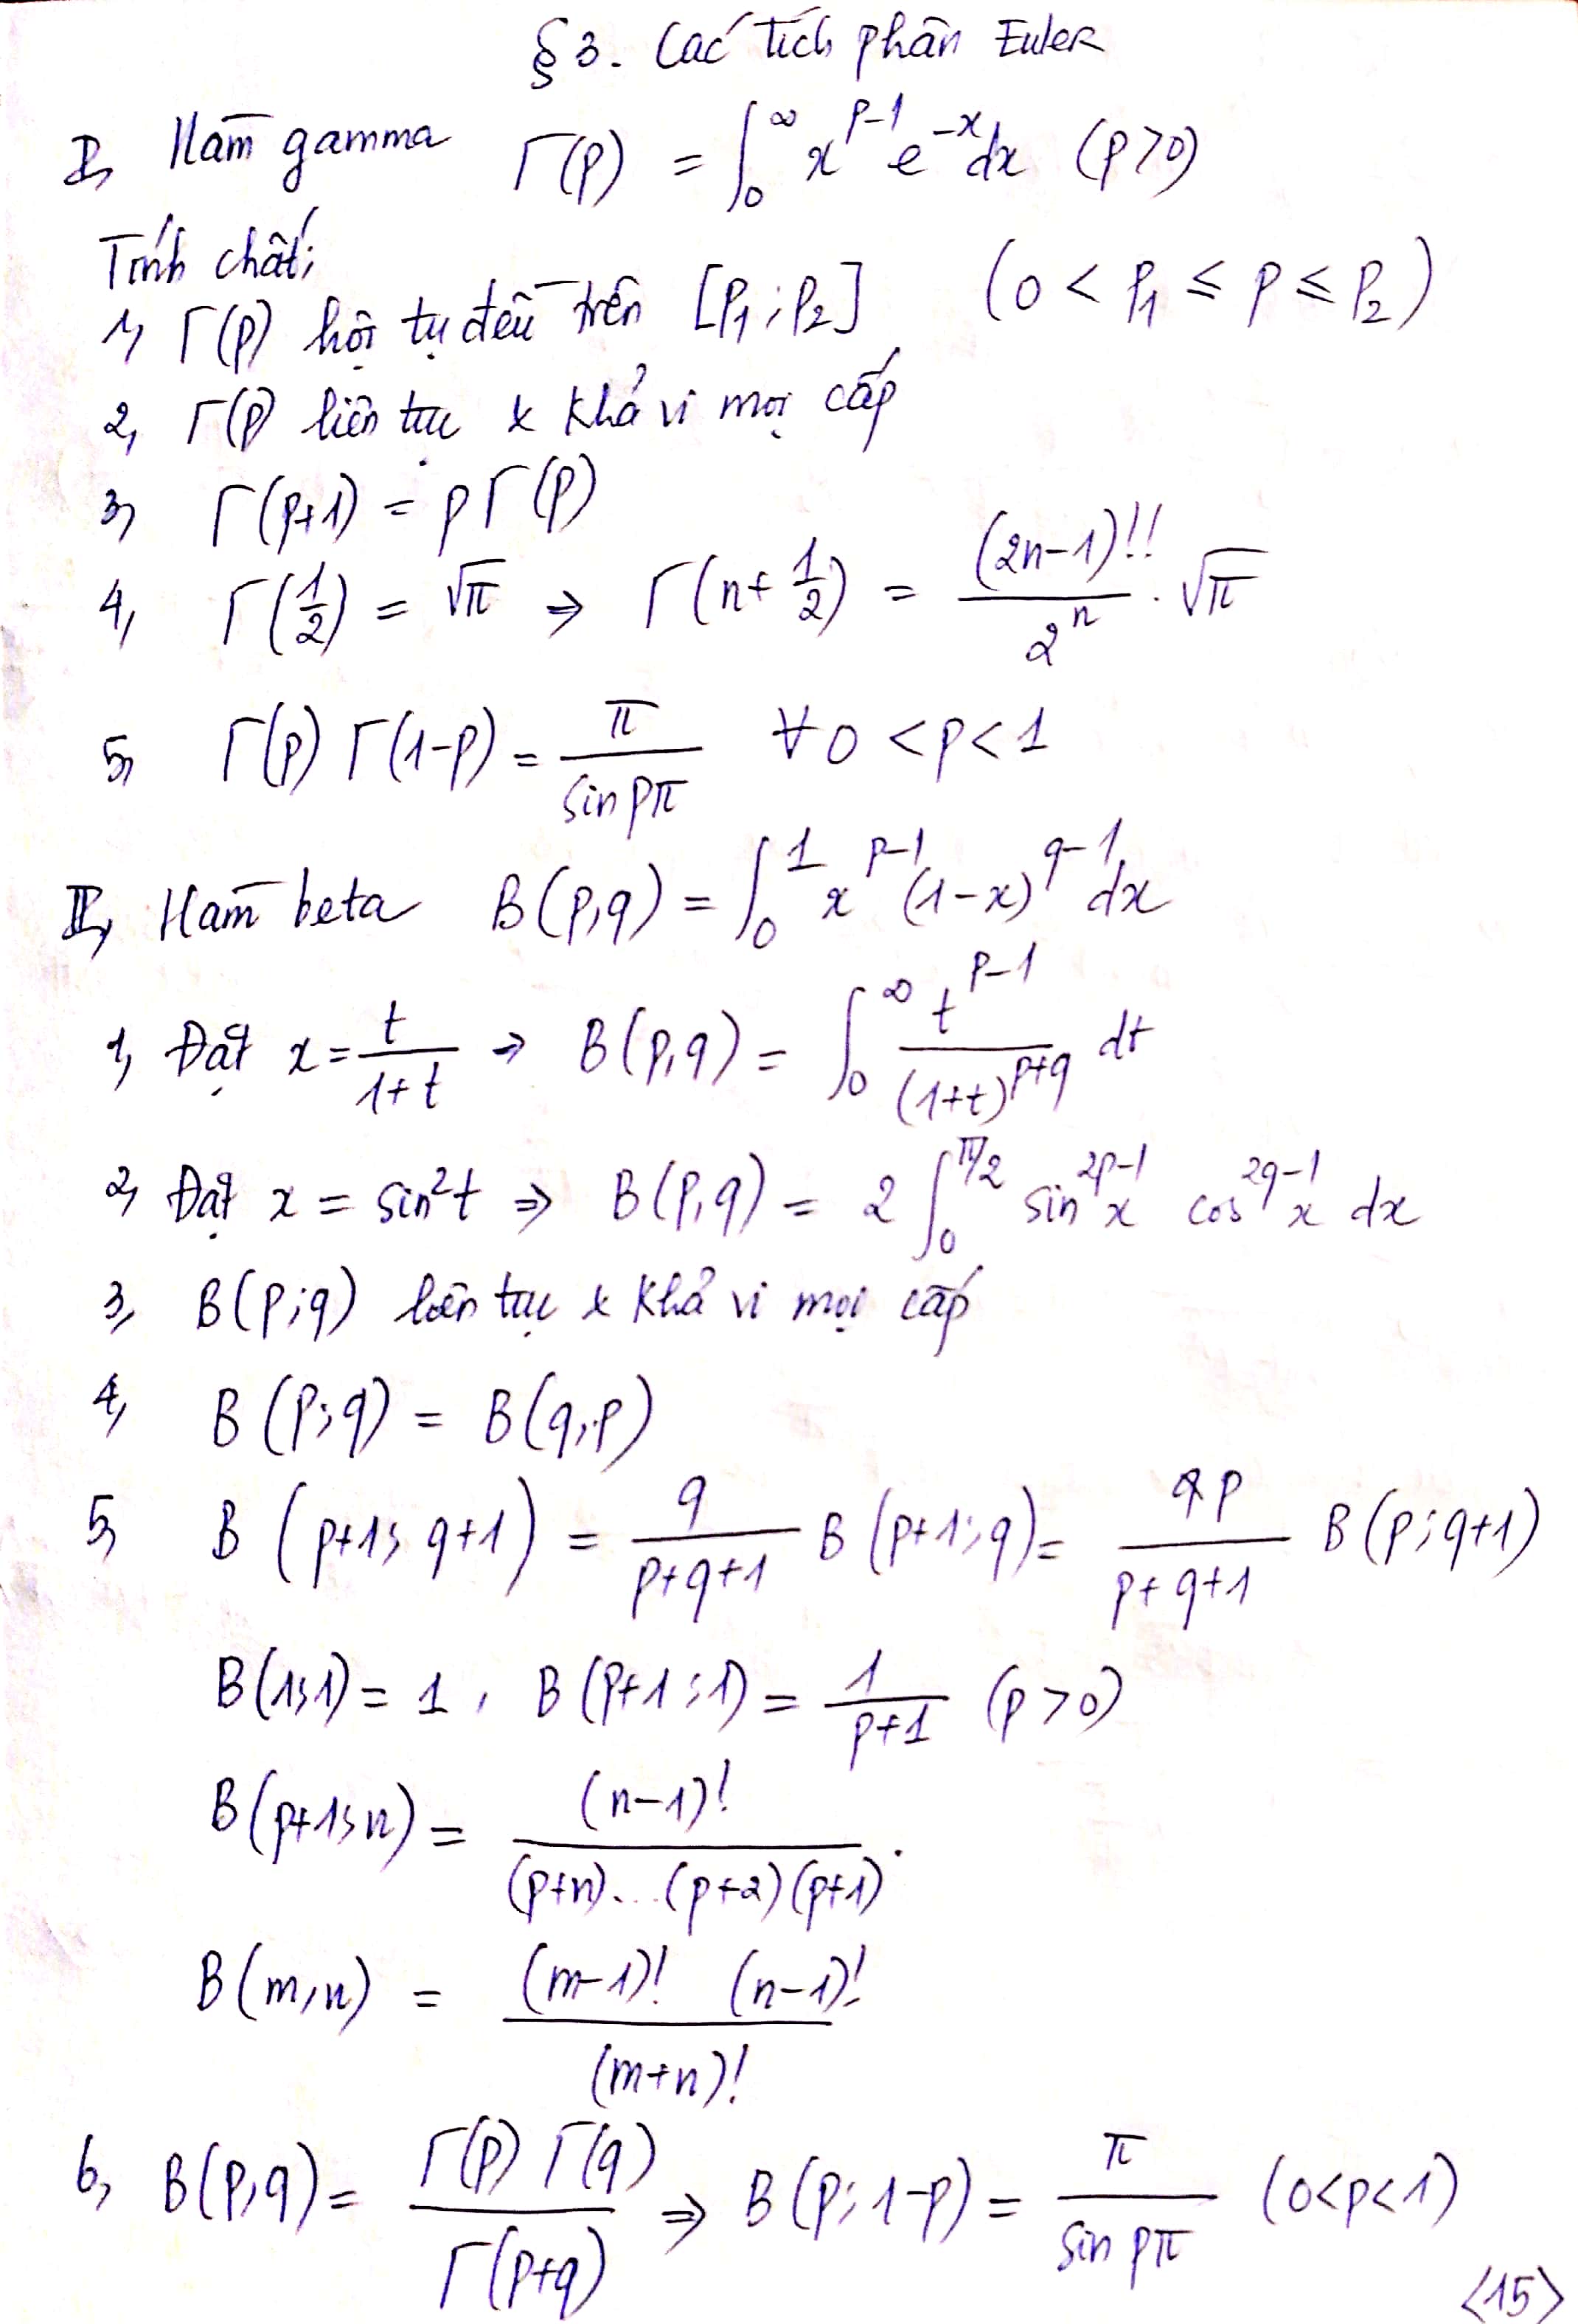 §3. Các tích phân Euler
I, Hàm gamma Γ(p) = ∫₀^∞ x^(p-1) e^(-x) dx (p>0)
Tính chất:
1, Γ(p) hội tụ đều trên [p₁; p₂] (0 < p₁ ≤ p ≤ p₂)
2, Γ(p) liên tục & khả vi mọi cấp
3, Γ(p+1) = pΓ(p)
4, Γ(1/2) = √π ⇒ Γ(n+1/2) = (2n-1)!!/2^n . √π
5, Γ(p) Γ(1-p) = π/sin pπ ∀ 0 < p < 1
II, Hàm beta B(p,q) = ∫₀^1 x^(p-1) (1-x)^(q-1) dx
1, Đặt x = t/(1+t) → B(p,q) = ∫₀^∞ t^(p-1)/(1+t)^(p+q) dt
2, Đặt x = sin²t ⇒ B(p,q) = 2 ∫₀^(π/2) sin^(2p-1) x cos^(2q-1) x dx
3, B(p;q) liên tục & khả vi mọi cấp
4, B(p;q) = B(q;p)
5, B(p+1; q+1) = q/(p+q+1) B(p+1;q) = p/(p+q+1) B(p;q+1)
B(1;1) = 1, B(p+1;1) = 1/(p+1) (p>0)
B(p+1;n) = (n-1)!/((p+n)...(p+2)(p+1)).
B(m,n) = (m-1)! (n-1)!/(m+n)!
6, B(p,q) = Γ(p) Γ(q)/Γ(p+q) ⇒ B(p;1-p) = π/sin pπ (0<p<1)
<15>